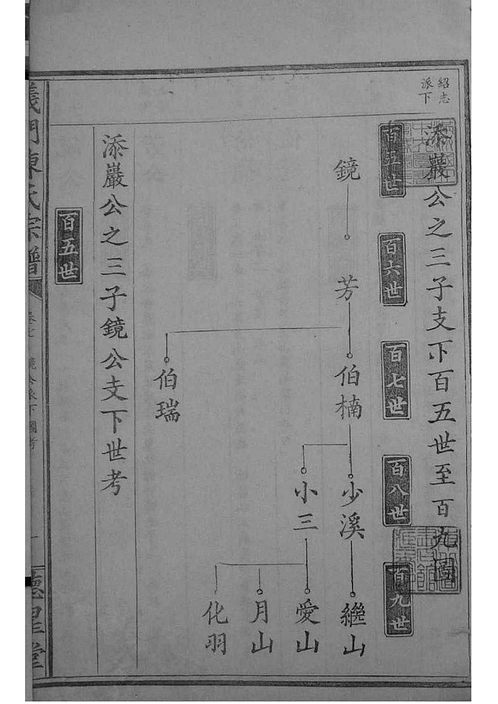 紹志
派下
添巖公之三子支下百五世至百九圖
百五世
百六世
百七世
百八世
百九世
鏡
芳
伯楠
伯瑞
少溪
小三
繼山
愛山
月山
化羽
添巖公之三子鏡公支下世考
百五世
義門陳氏宗譜
德星堂